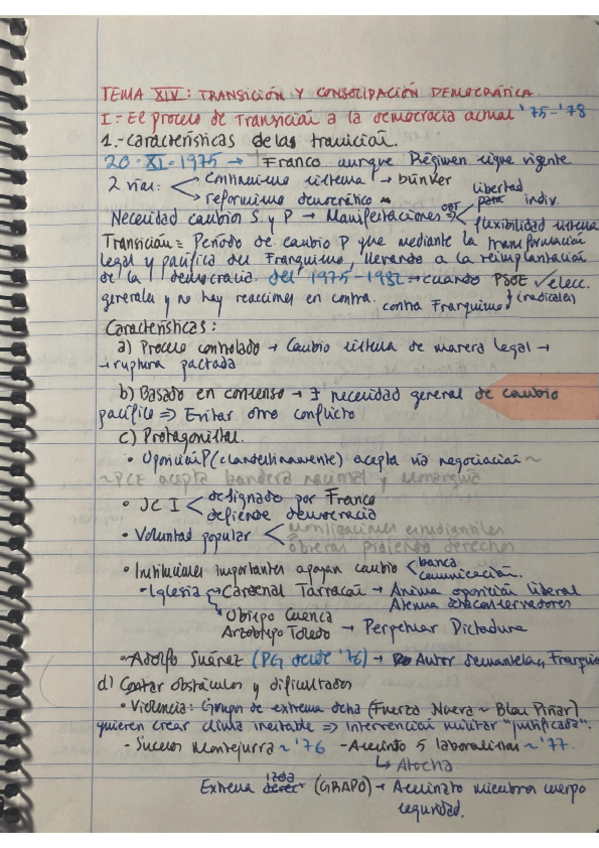 TEMA XIV: TRANSICIÓN Y CONSOLIDACIÓN DEMOCRÁTICA.
I.- El proceso de Transición a la democracia actual '75-'78
1.- Características de la transición.
20-XI-1975 → Franco aunque Régimen sigue vigente.
2 vías: continuismo sistema → búnker
reformismo democrático
libertad
Necesidad cambios S. y P → Manifestaciones indiv.
flexibilidad sistema
Transición = Período de cambio P que mediante la transformación
legal y pacífica del Franquismo, llevando a la reimplantación
de la democracia del 1975-1982 → cuando PSOE ✓ elecc.
generales y no hay reacciones en contra. contra Franquismo (radicales)
Características:
a) Proceso controlado → Cambio sistema de manera legal →
→ ruptura pactada
b) Basado en consenso → ∃ necesidad general de cambio
pacífico ⇒ Evitar otro conflicto
c) Protagonistas.
• Oposición P (clandestinamente) acepta vía negociación ~
~ PCE acepta bandera nacional y monarquía
• JC I designado por Franco
defiende democracia
• Voluntad popular movilizaciones estudiantiles
obreras pidiendo derechos
• Instituciones importantes apoyan cambio banca
comunicación.
• Iglesia → Cardenal Tarracón → Anima oposición liberal
Atenua dcha conservadores
Obispo Cuenca
Arzobispo Toledo → Perpetuar Dictadura
- Adolfo Suárez (PG desde '76) → Autor desmantelam. Franquis
d) Contar obstáculos y dificultades
• Violencia: Grupos de extrema dcha (Fuerza Nueva ~ Blas Piñar)
quieren crear clima inestable ⇒ Intervención militar "justificada".
- Sucesos Montejurra ~ '76 - Asesinato 5 laboralistas ~ '77
↳ Atocha
Extrema izda (GRAPO) → Asesinato miembros cuerpo
seguridad.